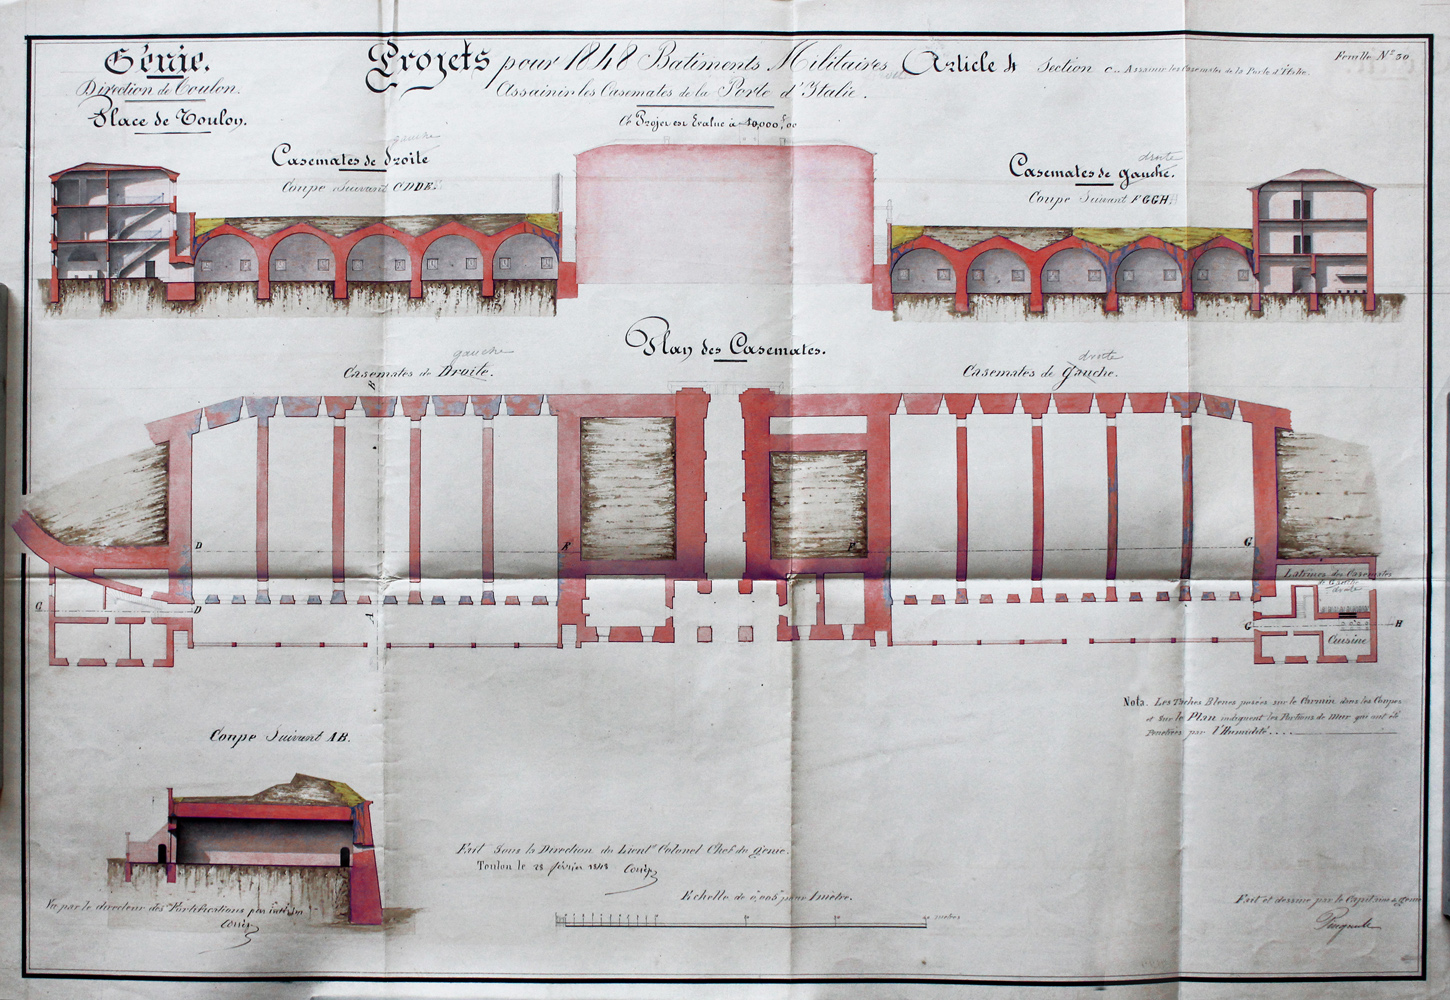 Génie.
Direction de Toulon.
Place de Toulon.
Projets pour 1848 Batiments Militaires Article 4 Section C.. Assainir les Casemates de la Porte d'Italie.
Feuille N° 30
Assainir les Casemates de la Porte d'Italie.
Ce Projet est Évalué à 40,000f,00
gauche
Casemates de droite
Coupe Suivant CDDE
droite
Casemates de gauche.
Coupe Suivant FGGH
Plan des Casemates.
gauche
Casemates de Droite.
droite
Casemates de gauche.
B
D
E
F
G
C
D
A
Latrines des Casemates
de Gauche
droite
G
H
Cuisine
Nota. Les Taches Bleues posées sur le Carmin dans les Coupes
et sur le Plan indiquent les Portions de Mur qui ont été
pénétrées par l'Humidité....
Coupe Suivant AB.
Fait Sous la Direction du Lieut. Colonel Chef du génie.
Toulon le 28 février 1848
Echelle de 0,005 pour 1 mètre.
mètres
Vu par le directeur des Fortifications par intérim
Fait et dessiné par le Capitaine du génie